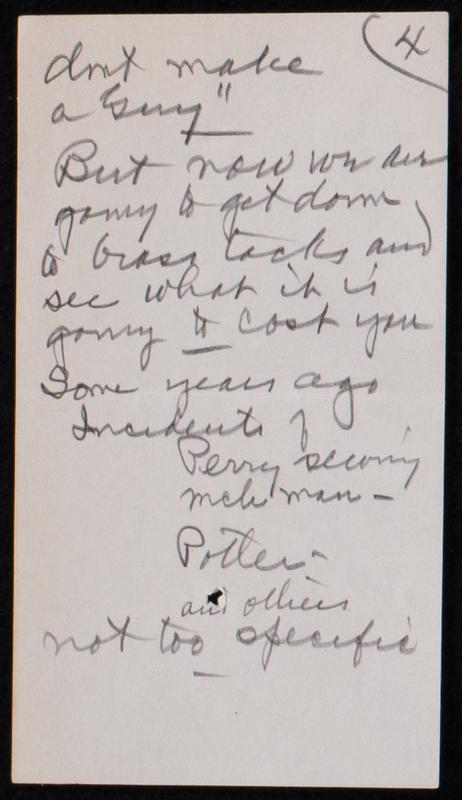 4
dont make
a "Guy"
But now we are
going to get down
to brass tacks and
see what it is
going to cost you
Some years ago
Incidents of
Perry sewing
mch man -
Potter -
and others
not too specific